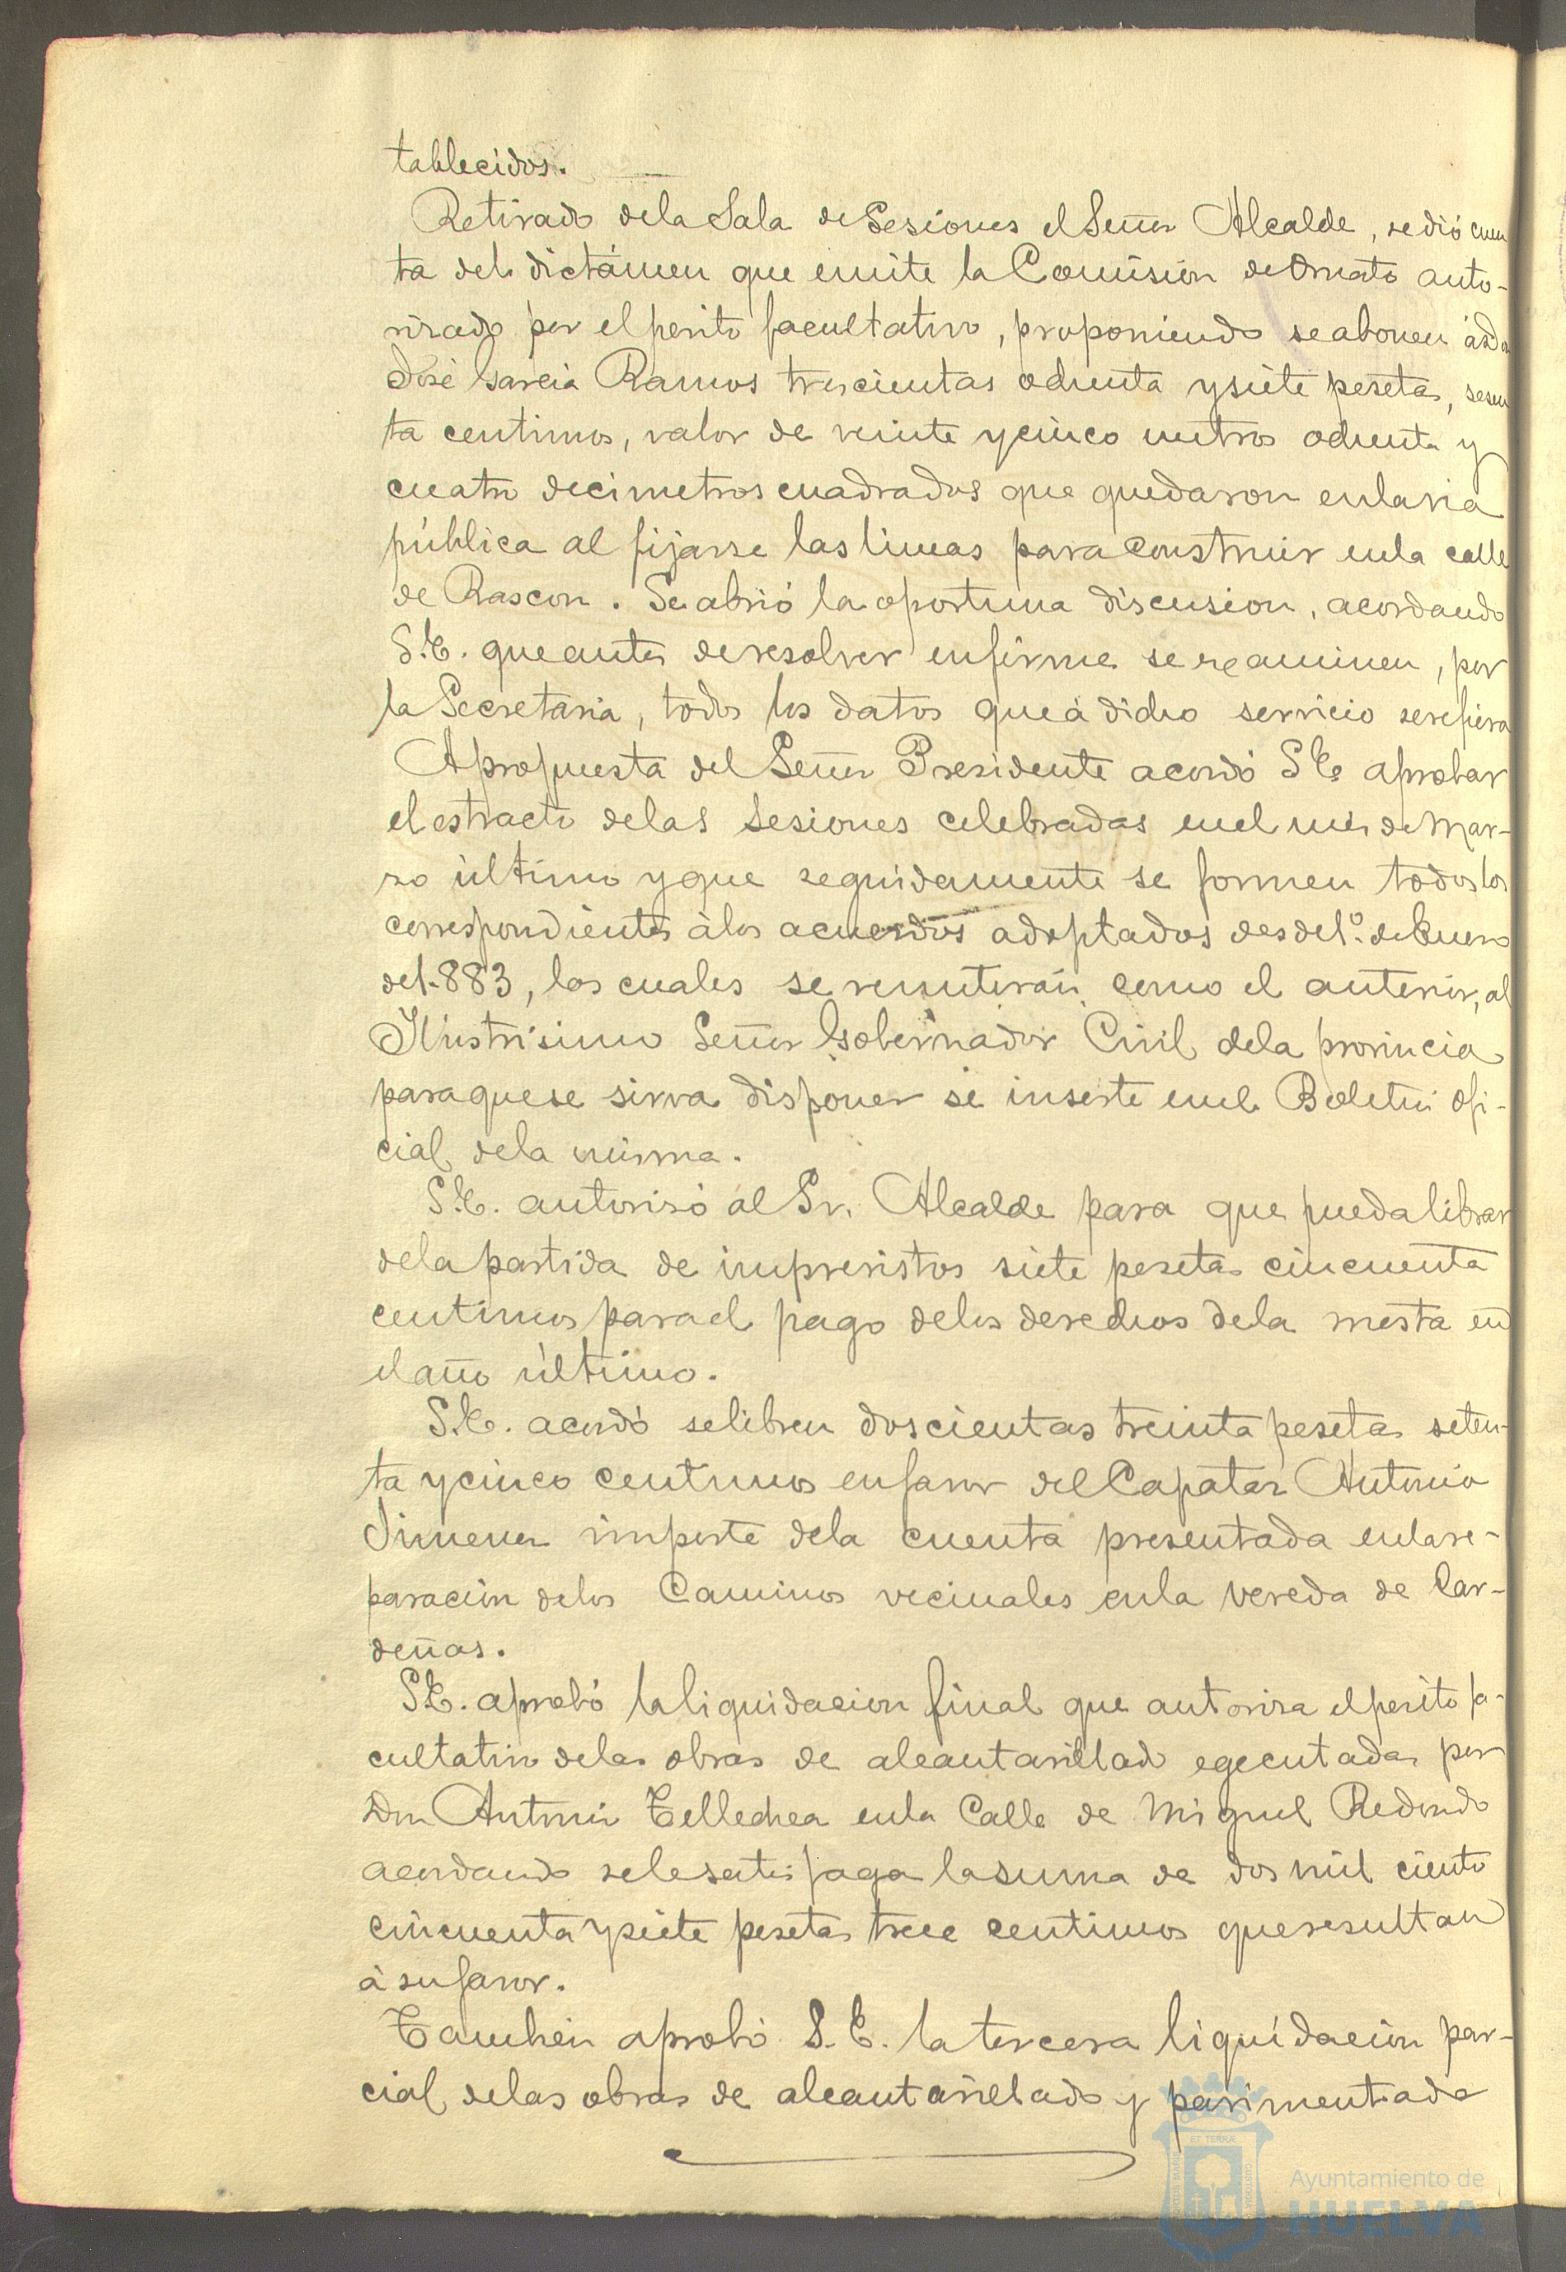 tablecidos.
Retirado de la Sala de Sesiones el Señor Alcalde, se dió cuen
ta del dictámen que emite la Comisión de Ornato auto-
rizado por el perito facultativo, proponiendo se abonen á Don
José Garcia Ramos trescientas ochenta y siete pesetas, sesen
ta centimos, valor de veinte y cinco metros ochenta y
cuatro decimetros cuadrados que quedaron en la via
pública al fijarse las lineas para construir en la calle
de Rascon. Se abrió la oportuna discusion, acordando
S.E. que antes de resolver en firme se reaminen, por
la Secretaria, todos los datos que á dicho servicio se refiera
A propuesta del Señor Presidente acordó S.E. aprobar
el estracto de las Sesiones celebradas en el mes de Mar-
zo último y que seguidamente se formen todos los
correspondientes á los acuerdos adoptados desde 1º. de Enero
de 1.883, los cuales se remitirán como el anterior, al
Ilustrisimo Señor Gobernador Civil de la provincia
para que se sirva disponer se inserte en el Boletin ofi-
cial de la misma.
S.E. autorizó al Sr. Alcalde para que pueda librar
de la partida de imprevistos siete pesetas cincuenta
centimos para el pago de los derechos de la mesta en
el año último.
S.E. acordó se libren doscientas treinta pesetas seten-
ta y cinco centimos en favor del Capataz Antonio
Jimenez importe de la cuenta presentada en la re-
paración de los Caminos vecinales en la vereda de Car-
deñas.
S.E. aprobó la liquidacion final que autoriza el perito fa-
cultativo de las obras de alcantarillado egecutadas por
Don Antonio Tellechea en la Calle de Miguel Redondo
acordando se le satisfaga la suma de dos mil ciento
cincuenta y siete pesetas trece centimos que resultan
á su favor.
Tambien aprobó S.E. la tercera liquidación par-
cial de las obras de alcantarillado y pavimentado
Ayuntamiento de
HUELVA